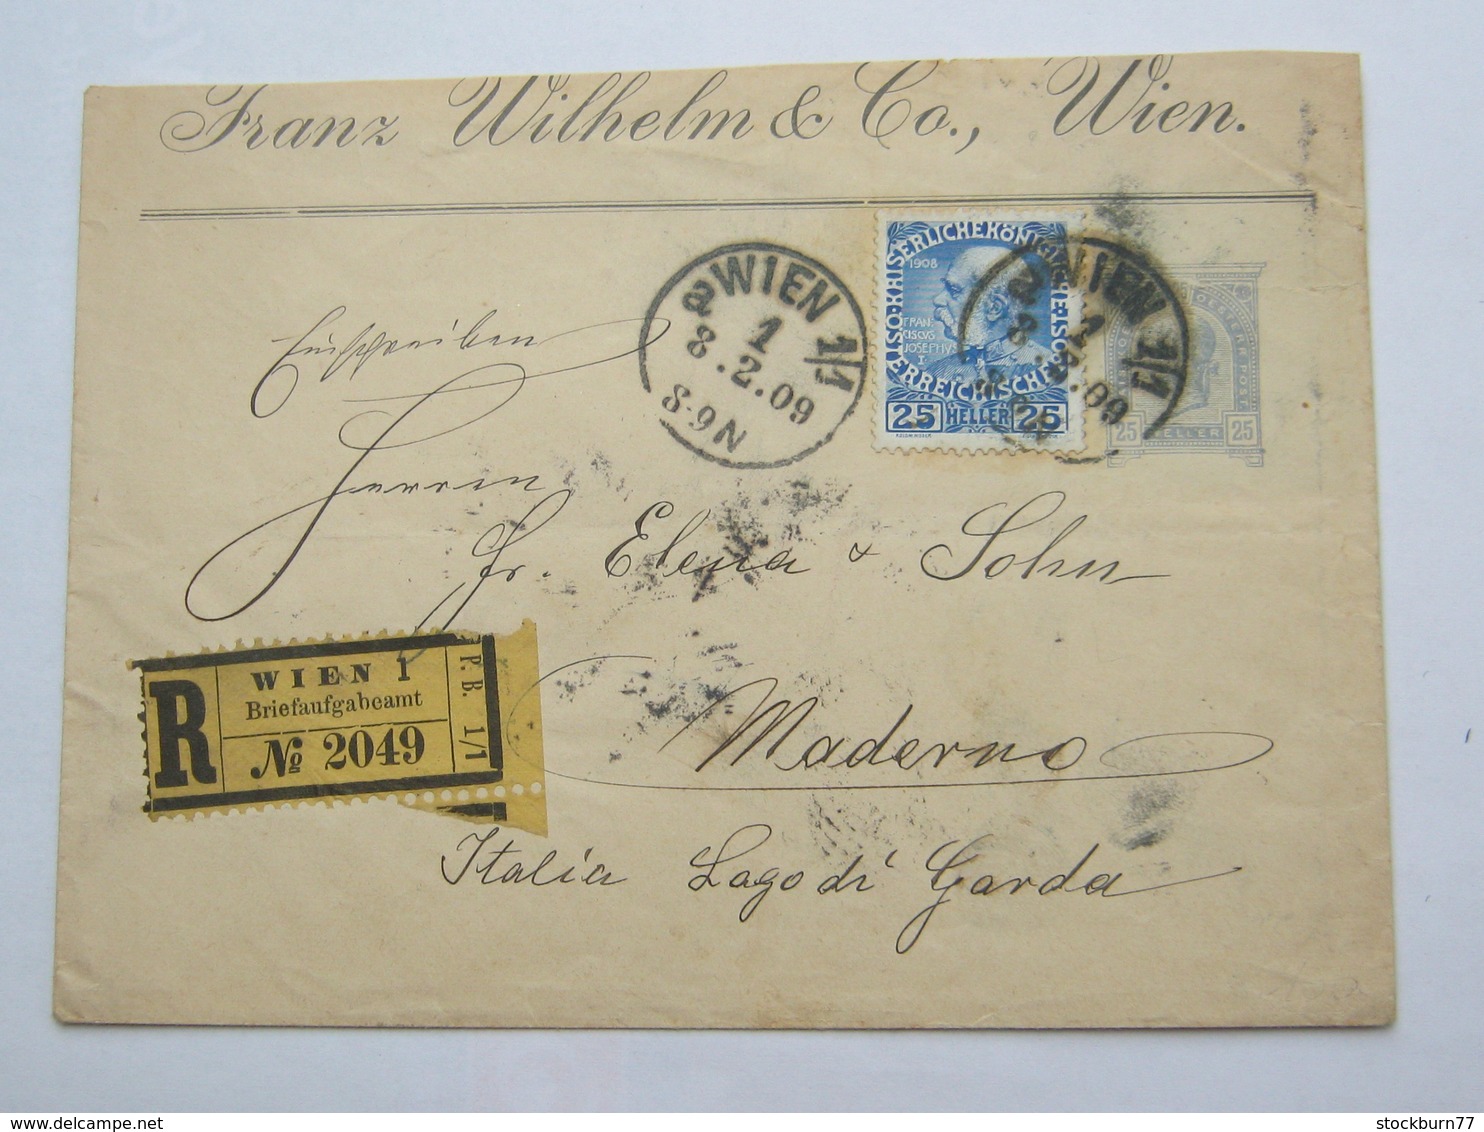 Franz Wilhelm & Co., Wien.
WIEN 1/1
1
8.2.09
8-9N
KAISERLICHE KÖNIGLICHE ÖSTERREICHISCHE POST
1908
FRAN
CISCVS
JOSEPHVS
I
25 HELLER 25
WIEN 1/1
1
8.2.09
OESTERR. POST
25 HELLER 25
Einschreiben
Herren
Fr. Elena & Sohn
Maderno
Italia Lago di Garda
R
WIEN 1
Briefaufgabeamt
№ 2049
P. B. 1/1
stockburn77